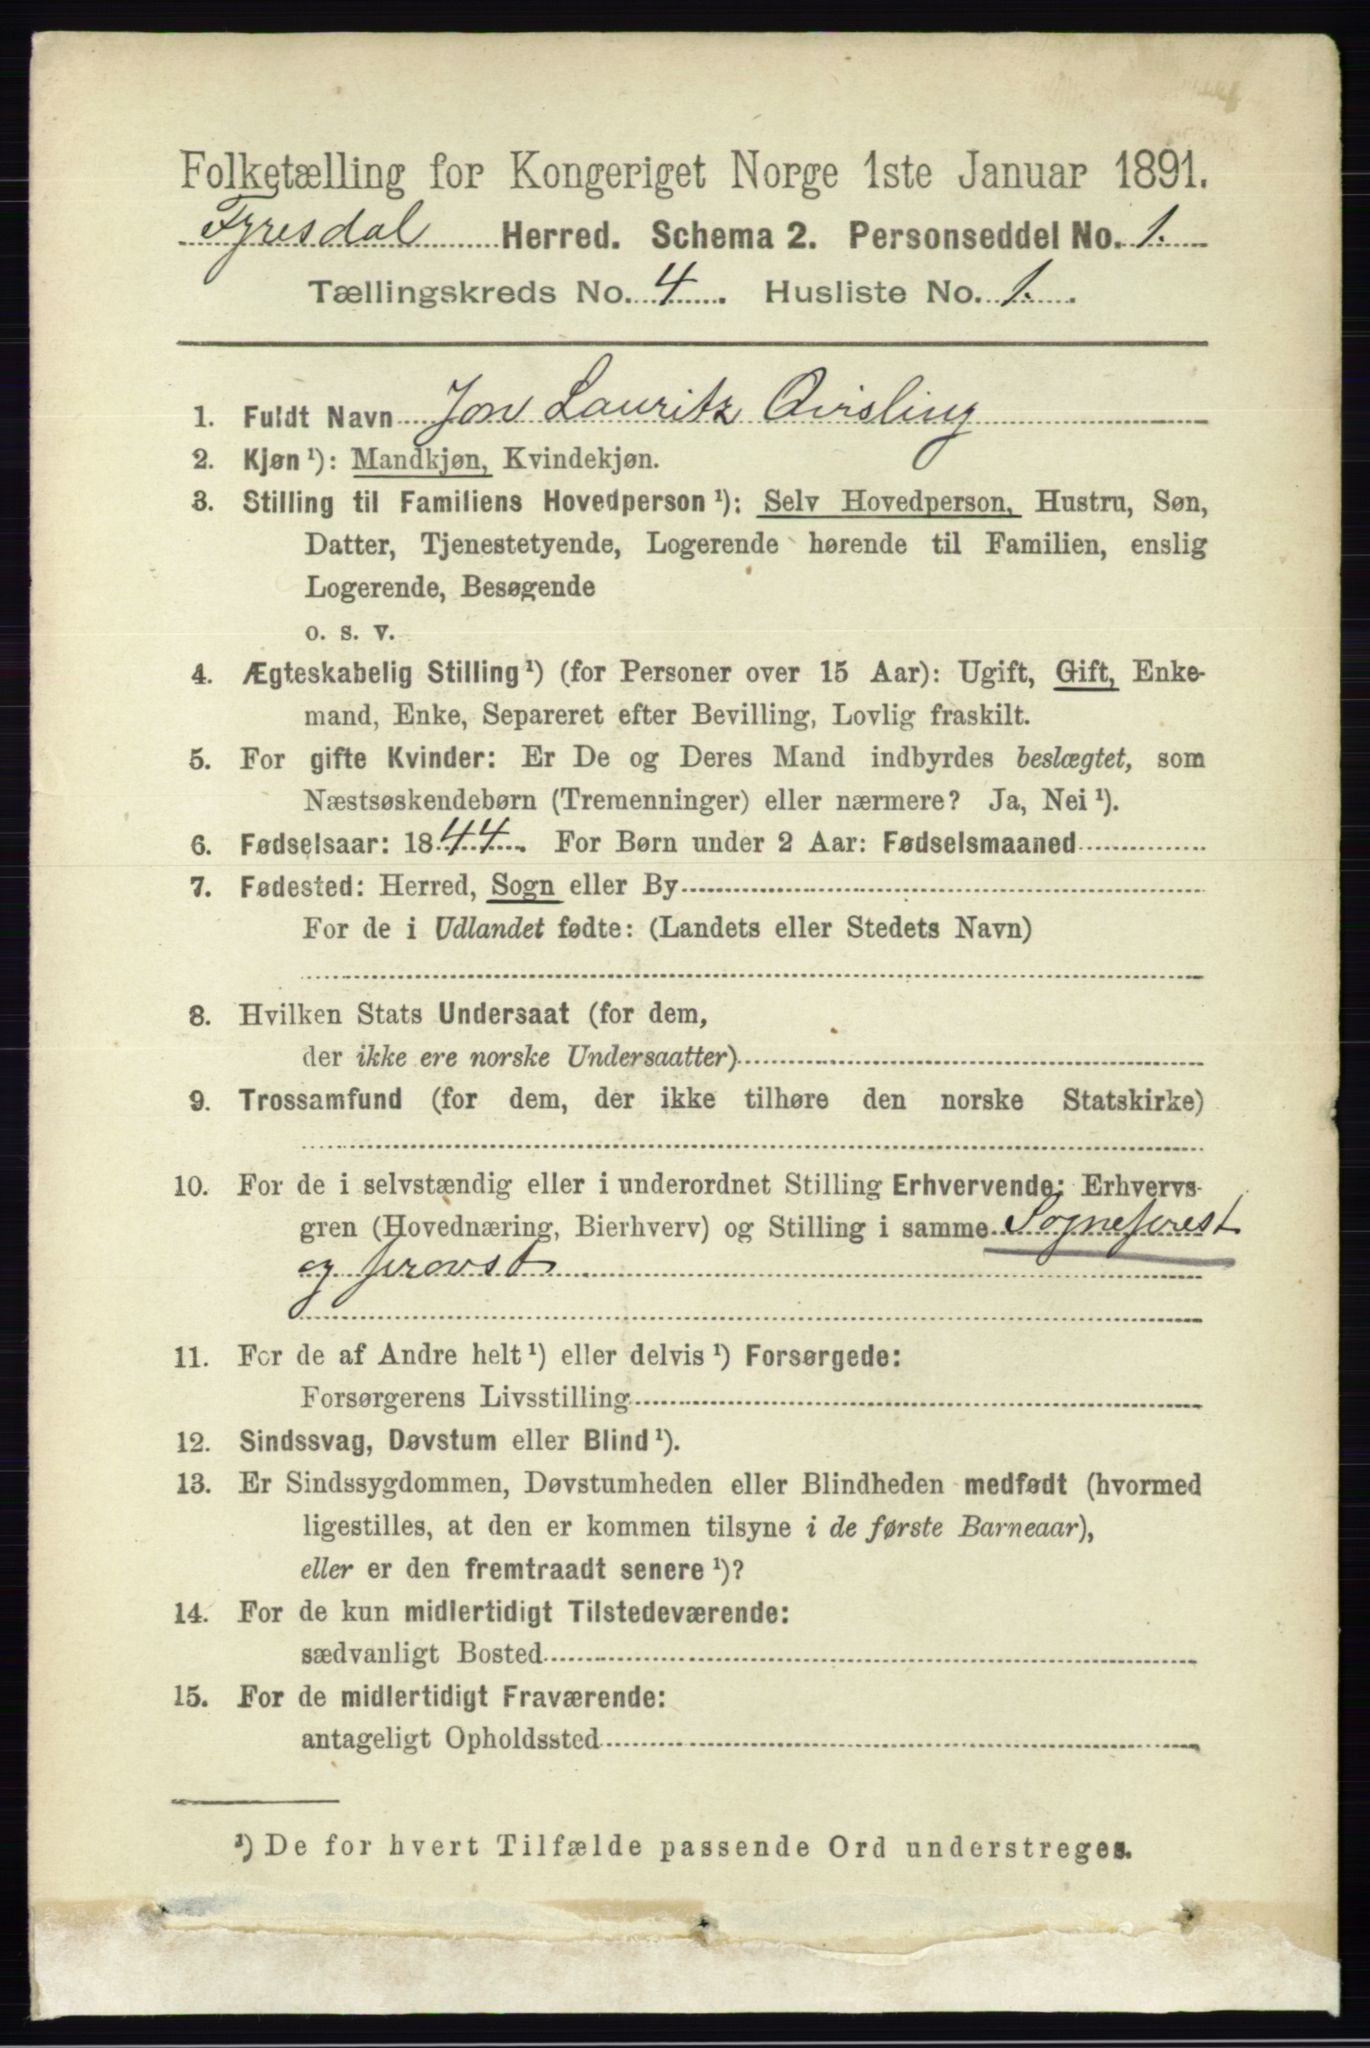 Folketælling for Kongeriget Norge 1ste Januar 1891.
Fyresdal Herred. Schema 2. Personseddel No. 1.
Tællingskreds No. 4. Husliste No. 1.
1. Fuldt Navn Jon Lauritz Qvisling
2. Kjøn ¹): Mandkjøn, Kvindekjøn.
3. Stilling til Familiens Hovedperson ¹): Selv Hovedperson, Hustru, Søn,
Datter, Tjenestetyende, Logerende hørende til Familien, enslig
Logerende, Besøgende
o. s. v.
4. Ægteskabelig Stilling ¹) (for Personer over 15 Aar): Ugift, Gift, Enke-
mand, Enke, Separeret efter Bevilling, Lovlig fraskilt.
5. For gifte Kvinder: Er De og Deres Mand indbyrdes beslægtet, som
Næstsøskendebørn (Tremenninger) eller nærmere? Ja, Nei ¹).
6. Fødselsaar: 1844. For Børn under 2 Aar: Fødselsmaaned
7. Fødested: Herred, Sogn eller By
For de i Udlandet fødte: (Landets eller Stedets Navn)
8. Hvilken Stats Undersaat (for dem,
der ikke ere norske Undersaatter)
9. Trossamfund (for dem, der ikke tilhøre den norske Statskirke)
10. For de i selvstændig eller i underordnet Stilling Erhvervende: Erhvervs-
gren (Hovednæring, Bierhverv) og Stilling i samme Sogneprest
og provst
11. For de af Andre helt ¹) eller delvis ¹) Forsørgede:
Forsørgerens Livsstilling
12. Sindssvag, Døvstum eller Blind ¹).
13. Er Sindssygdommen, Døvstumheden eller Blindheden medfødt (hvormed
ligestilles, at den er kommen tilsyne i de første Barneaar),
eller er den fremtraadt senere ¹)?
14. For de kun midlertidigt Tilstedeværende:
sædvanligt Bosted
15. For de midlertidigt Fraværende:
antageligt Opholdssted
¹) De for hvert Tilfælde passende Ord understreges.